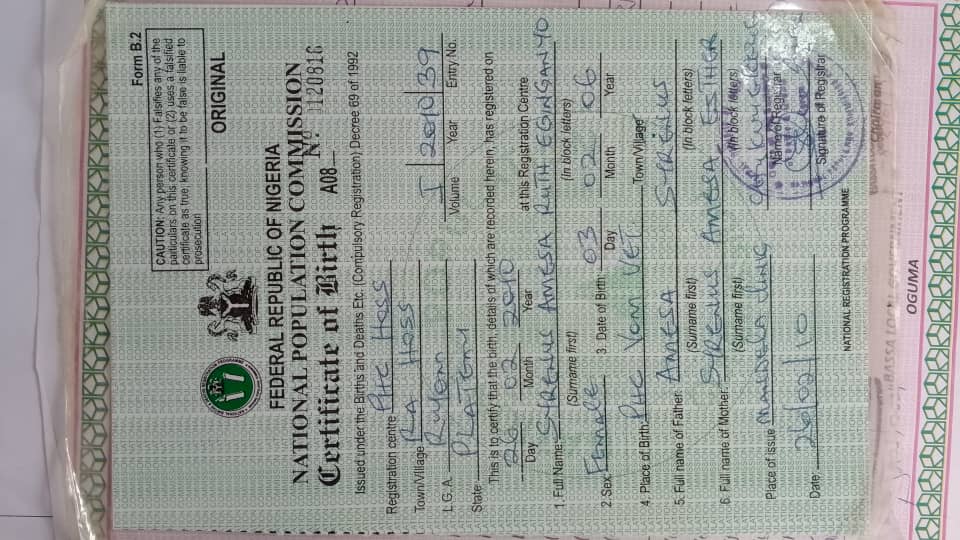 Form B.2
CAUTION: Any person who (1) Falsifies any of the
particulars on this certificate or (2) uses a falsified
certificate as true; knowing it to be false is liable to
prosecution
ORIGINAL
FEDERAL REPUBLIC OF NIGERIA
NATIONAL POPULATION COMMISSION
Certificate of Birth A08 Nº 1120816
Issued under the Births and Deaths Etc. (Compulsory Registration) Decree 69 of 1992
Registration centre PHC Hoss
Town/Village RA Hoss I 2010 39
L.G.A. Volume Year Entry No.
State PLATEAU
This is to certify that the birth, details of which are recorded herein, has registered on
26 02 2010 at this Registration Centre
Day Month Year
1. Full Name SYRENIUS AMESA RUTH
(Surname first) (In block letters)
2. Sex Female 3. Date of Birth 03 02 06
Day Month Year
4. Place of Birth PHC VOM VET Town/Village
5. Full name of Father AMESA SYRENIUS
(Surname first) (In block letters)
6. Full name of Mother SYRENIUS AMESA ESTHER
(Surname first) (In block letters)
Place of issue
Name of Registrar
Date 26/02/10
Signature of Registrar
NATIONAL REGISTRATION PROGRAMME
OGUMA